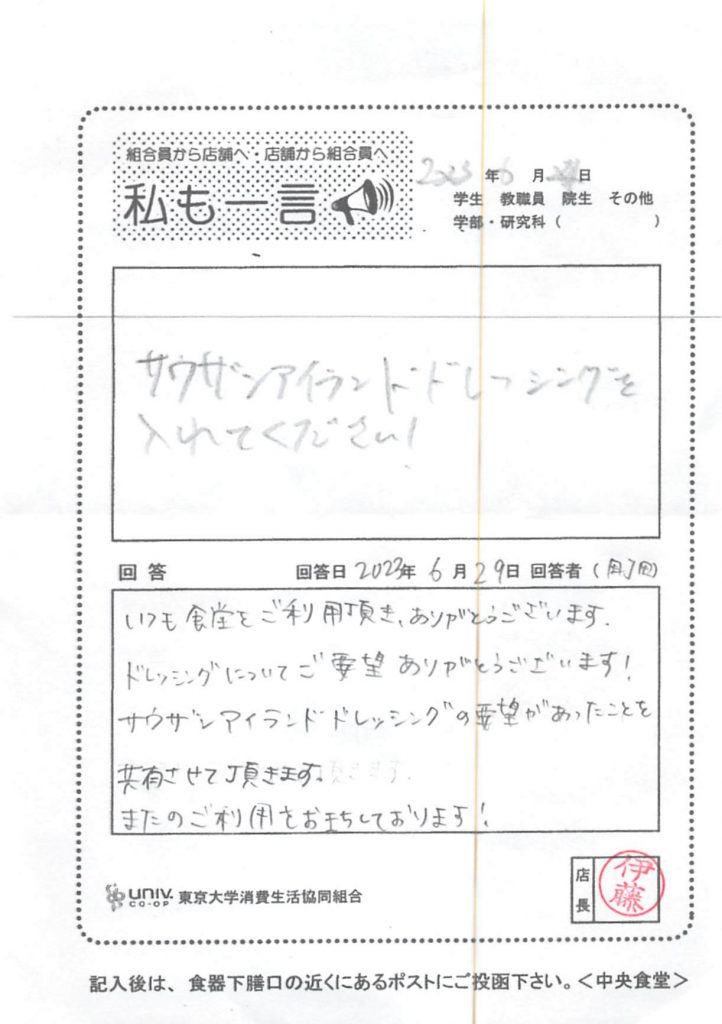 組合員から店舗へ・店舗から組合員へ
私も一言
2023年 6月 日
学生 教職員 院生 その他
学部・研究科( )
サウザンアイランドドレッシングを
入れてください!
回答 回答日 2023年 6月 29日 回答者( )
いつも食堂をご利用頂き、ありがとうございます.
ドレッシングについてご要望ありがとうございます!
サウザンアイランドドレッシングの要望があったことを
共有させて頂きます.
またのご利用をお待ちしております!
UNIV. CO-OP 東京大学消費生活協同組合
店長 伊藤
記入後は、食器下膳口の近くにあるポストにご投函下さい。<中央食堂>